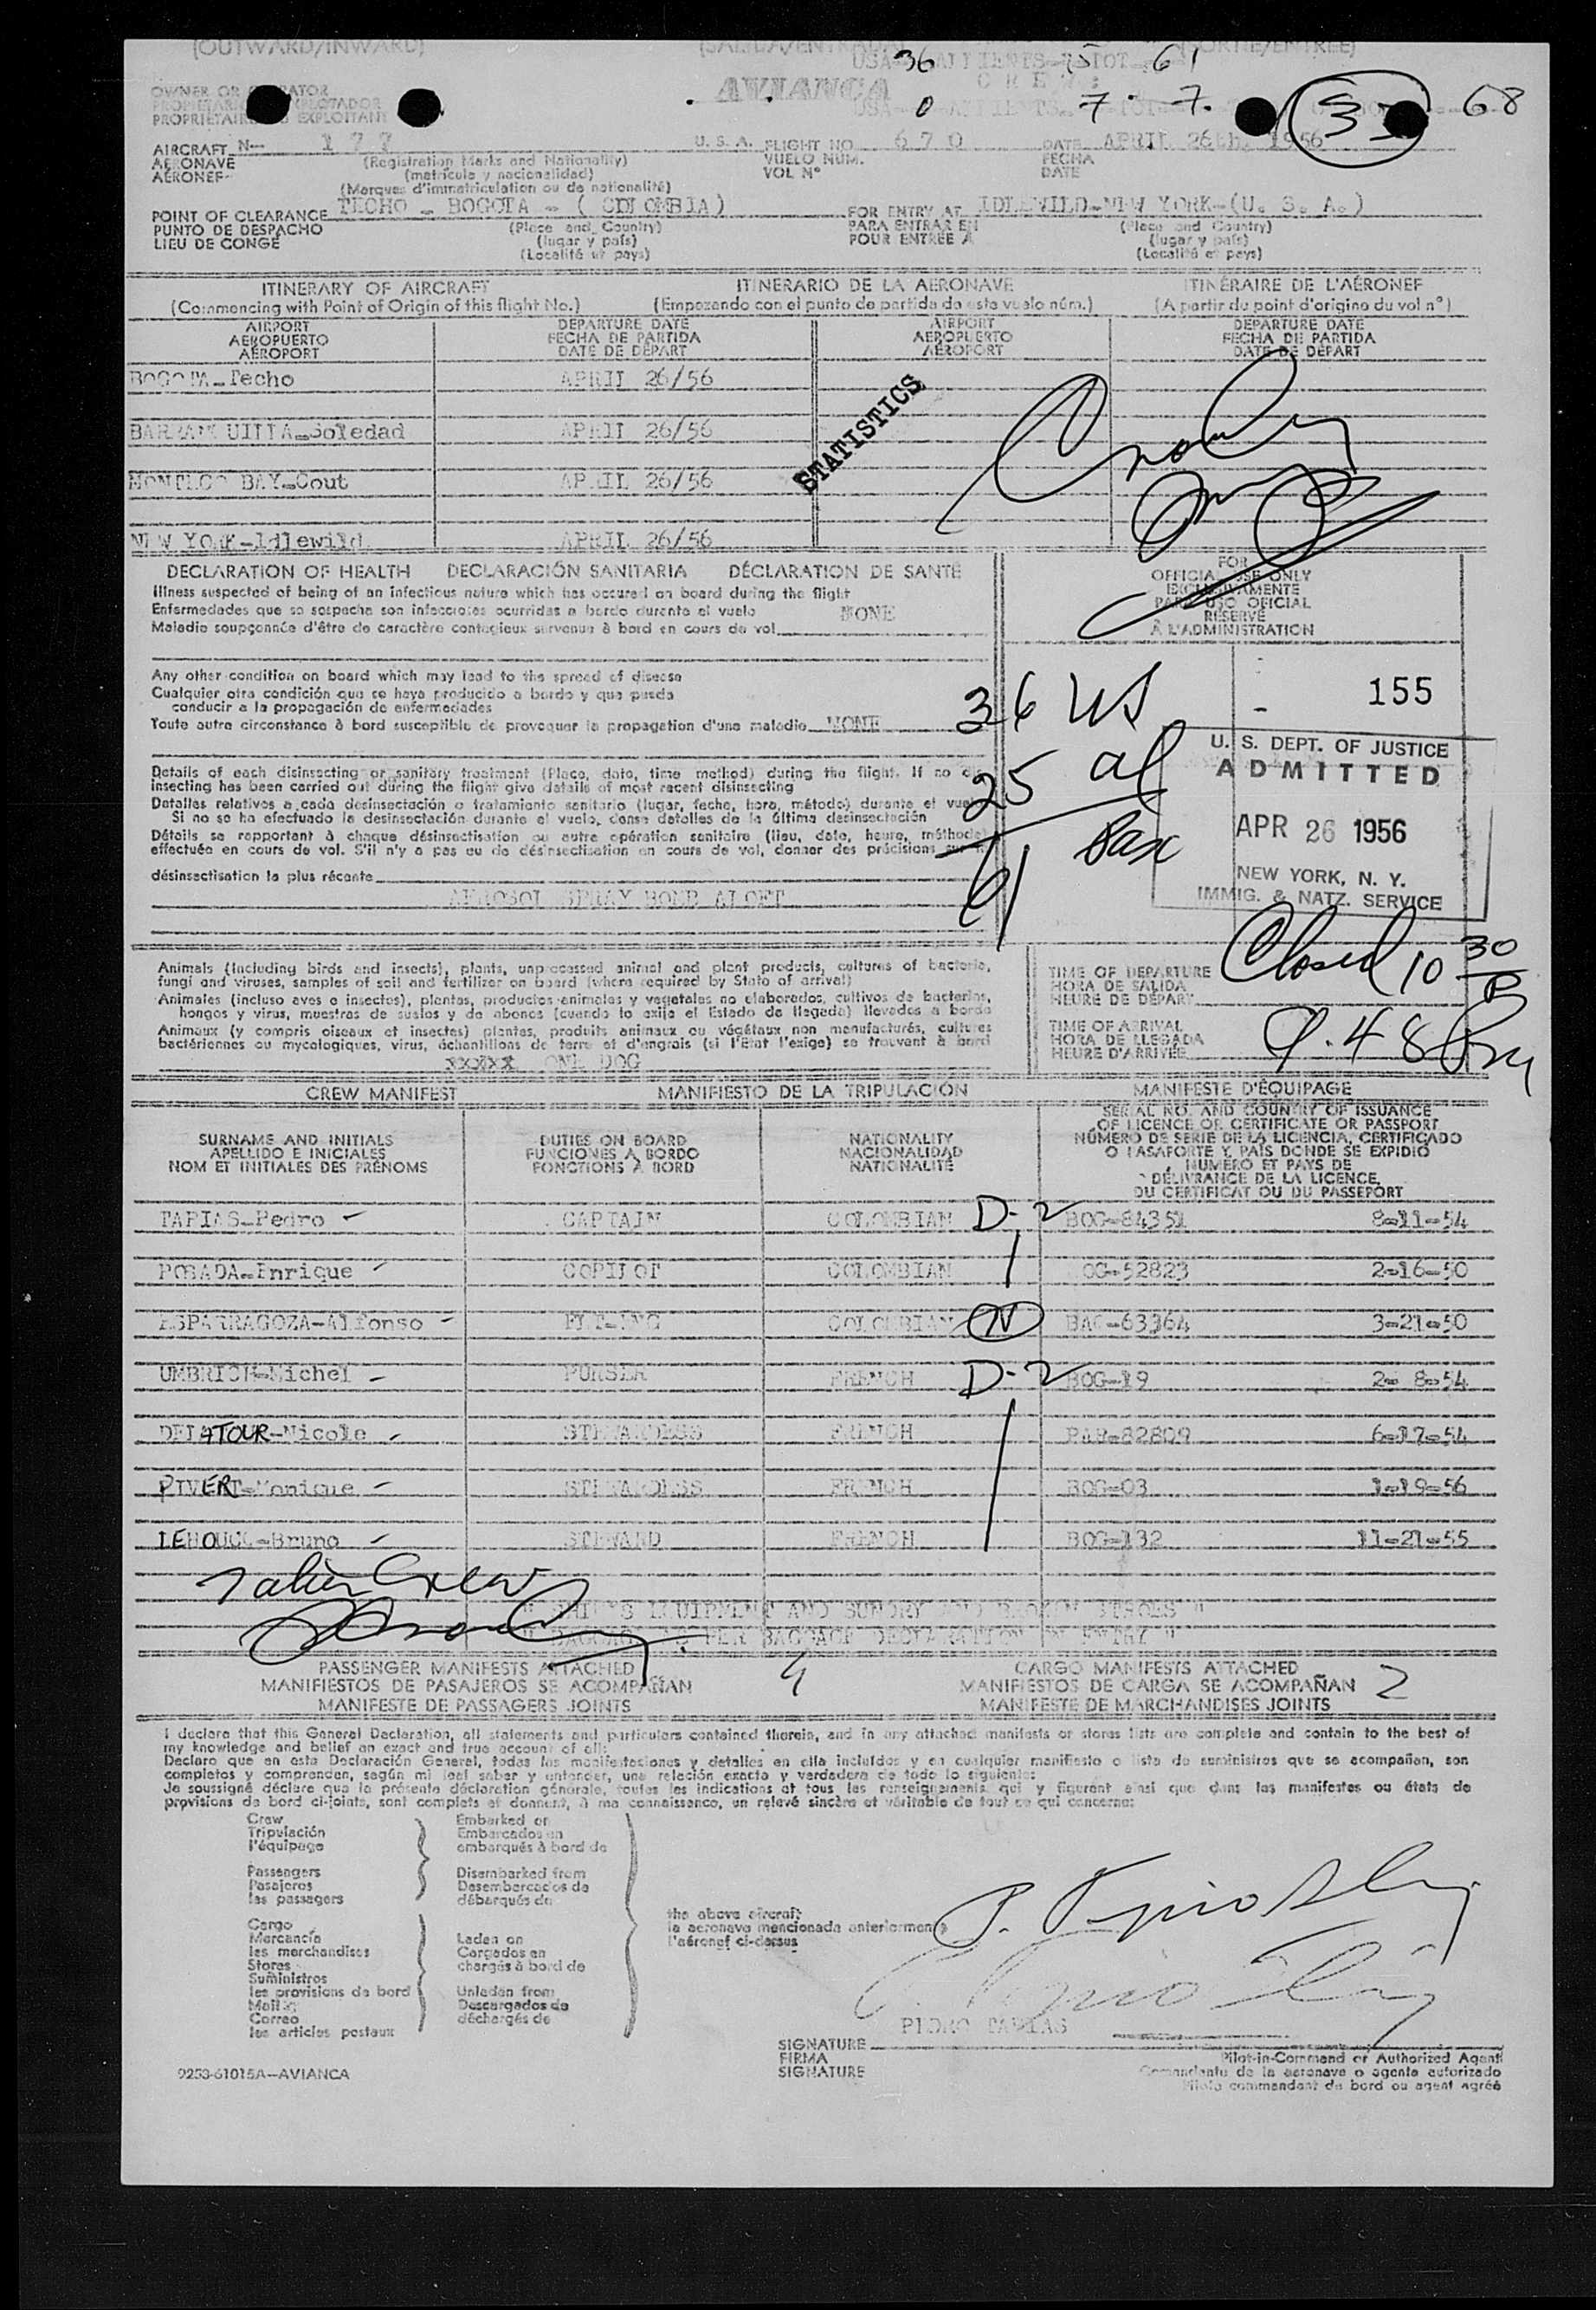 (OUTWARD/INWARD)
USA 36 61
AVIANCA CREW:
USA 0 7 7. 68
OWNER OR
PROPIETARIO EXPLOTADOR
PROPRIETAIRE EXPLOITANT
AIRCRAFT N-- 177 U. S. A. FLIGHT NO 670 DATE APRIL 26th. 1956
AERONAVE (Registration Marks and Nationality) VUELO NUM. FECHA
AÉRONEF (matrícula y nacionalidad) VOL Nº DATE
(Marques d'immatriculation ou de nationalité)
POINT OF CLEARANCE TECHO - BOGOTA - ( COLOMBIA) FOR ENTRY AT IDLEWILD-NEW YORK-(U. S. A.)
PUNTO DE DESPACHO (Place and Country) PARA ENTRAR EN (Place and Country)
LIEU DE CONGÉ (lugar y país) POUR ENTRÉE À (lugar y país)
(Localité et pays) (Localité et pays)
ITINERARY OF AIRCRAFT ITINERARIO DE LA AERONAVE ITINÉRAIRE DE L'AÉRONEF
(Commencing with Point of Origin of this flight No.) (Empezando con el punto de partida de este vuelo núm.) (A partir du point d'origine du vol nº)
AIRPORT DEPARTURE DATE AIRPORT DEPARTURE DATE
AEROPUERTO FECHA DE PARTIDA AEROPUERTO FECHA DE PARTIDA
AÉROPORT DATE DE DÉPART AÉROPORT DATE DE DÉPART
BOGOTA-Techo APRIL 26/56
STATISTICS
BARRANQUILLA-Soledad APRIL 26/56
MONTEGO BAY-Cout APRIL 26/56
NEW YORK-Idlewild APRIL 26/56
DECLARATION OF HEALTH DECLARACIÓN SANITARIA DÉCLARATION DE SANTÉ
Illness suspected of being of an infectious nature which has occured on board during the flight
Enfermedades que se sospecha son infecciosas ocurridas a bordo durante el vuelo NONE
Maladie soupçonnée d'être de caractère contagieux survenue à bord en cours de vol
FOR
OFFICIAL USE ONLY
EXCLUSIVAMENTE
PARA USO OFICIAL
RÉSERVÉ
À L'ADMINISTRATION
Any other condition on board which may lead to the spread of disease
Cualquier otra condición que se haya producido a bordo y que pueda
conducir a la propagación de enfermedades
Toute autre circonstance à bord susceptible de provoquer la propagation d'une maladie NONE
36 US
25 al
61 Pax
155
U. S. DEPT. OF JUSTICE
ADMITTED
APR 26 1956
NEW YORK, N. Y.
IMMIG. & NATZ. SERVICE
Details of each disinsecting or sanitary treatment (Place, date, time method) during the flight. If no
insecting has been carried out during the flight give details of most recent disinsecting
Detalles relativos a cada desinsectación o tratamiento sanitario (lugar, fecha, hora, método) durante el vuelo
Si no se ha efectuado la desinsectación durante el vuelo, dense detalles de la última desinsectación
Détails se rapportant à chaque désinsectisation ou autre opération sanitaire (lieu, date, heure, méthode)
effectuée en cours de vol. S'il n'y a pas eu de désinsectisation en cours de vol, donner des précisions sur
désinsectisation la plus récente
AEROSOL SPRAY BOMB ALOFT
Closed 10 30 P
Animals (including birds and insects), plants, unprocessed animal and plant products, cultures of bacteria,
fungi and viruses, samples of soil and fertilizer on board (where required by State of arrival)
Animales (incluso aves e insectos), plantas, productos animales y vegetales no elaborados, cultivos de bacterias,
hongos y virus, muestras de suelos y de abonos (cuando lo exija el Estado de llegada) llevados a bordo
Animaux (y compris oiseaux et insectes) plantes, produits animaux ou végétaux non manufacturés, cultures
bactériennes ou mycologiques, virus, échantillons de terre et d'engrais (si l'Etat l'exige) se trouvant à bord
ONE DOG
TIME OF DEPARTURE
HORA DE SALIDA
HEURE DE DÉPART
TIME OF ARRIVAL
HORA DE LLEGADA 9.48 Pm
HEURE D'ARRIVÉE
CREW MANIFEST MANIFIESTO DE LA TRIPULACIÓN MANIFESTE D'ÉQUIPAGE
SURNAME AND INITIALS DUTIES ON BOARD NATIONALITY
APELLIDO E INICIALES FUNCIONES A BORDO NACIONALIDAD
NOM ET INITIALES DES PRÉNOMS FONCTIONS À BORD NATIONALITÉ
SERIAL NO. AND COUNTRY OF ISSUANCE
OF LICENCE OR CERTIFICATE OR PASSPORT
NÚMERO DE SERIE DE LA LICENCIA, CERTIFICADO
O PASAPORTE Y PAÍS DONDE SE EXPIDIÓ
NUMÉRO ET PAYS DE
DÉLIVRANCE DE LA LICENCE,
DU CERTIFICAT OU DU PASSEPORT
TAPIAS-Pedro CAPTAIN COLOMBIAN D-2 BOG-84351 8-11-54
POSADA-Enrique COPILOT COLOMBIAN OG-52823 2-16-50
ESPARRAGOZA-Alfonso FLT-ENG COLOMBIAN N BAQ-63364 3-21-50
UMBRICH-Michel PURSER FRENCH D-2 BOG-19 2- 8-54
DELATOUR-Nicole STEWARDESS FRENCH PAR-82809 6-17-54
PIVERT-Monique STEWARDESS FRENCH BOG-03 1-19-56
LEHOUCQ-Bruno STEWARD FRENCH BOG-132 11-21-55
Crew
" SHIP'S EQUIPMENT AND SUNDRY AND BROKEN STORES "
" BAGGAGE AS PER BAGGAGE DECLARATION ENTRY "
PASSENGER MANIFESTS ATTACHED CARGO MANIFESTS ATTACHED
MANIFIESTOS DE PASAJEROS SE ACOMPAÑAN 4 MANIFIESTOS DE CARGA SE ACOMPAÑAN 2
MANIFESTE DE PASSAGERS JOINTS MANIFESTE DE MARCHANDISES JOINTS
I declare that this General Declaration, all statements and particulars contained therein, and in any attached manifests or stores lists are complete and contain to the best of
my knowledge and belief an exact and true account of all:
Declaro que en esta Declaración General, todas las manifestaciones y detalles en ella incluídos y en cualquier manifiesto o lista de suministros que se acompañan, son
completos y comprenden, según mi leal saber y entender, una relación exacta y verdadera de todo lo siguiente:
Je soussigné déclare que la présente déclaration générale, toutes les indications et tous les renseignements qui y figurent ainsi que dans les manifestes ou états de
provisions de bord ci-joints, sont complets et donnent, à ma connaissance, un relevé sincère et véritable de tout ce qui concerne:
Crew Embarked on
Tripulación Embarcados en
l'équipage embarqués à bord de
Passengers Disembarked from
Pasajeros Desembarcados de
les passagers débarqués de
the above aircraft
la aeronave mencionada anteriormente
l'aéronef ci-dessus
Cargo
Mercancía Laden on
les merchandises Cargados en
Stores chargés à bord de
Suministros
les provisions de bord Unladen from
Mail Descargados de
Correo déchargés de
les articles postaux
PEDRO TAPIAS
SIGNATURE
FIRMA Pilot-in-Command or Authorized Agent
SIGNATURE Comandante de la aeronave o agente autorizado
Pilote commandant de bord ou agent agréé
9253-61015A-AVIANCA